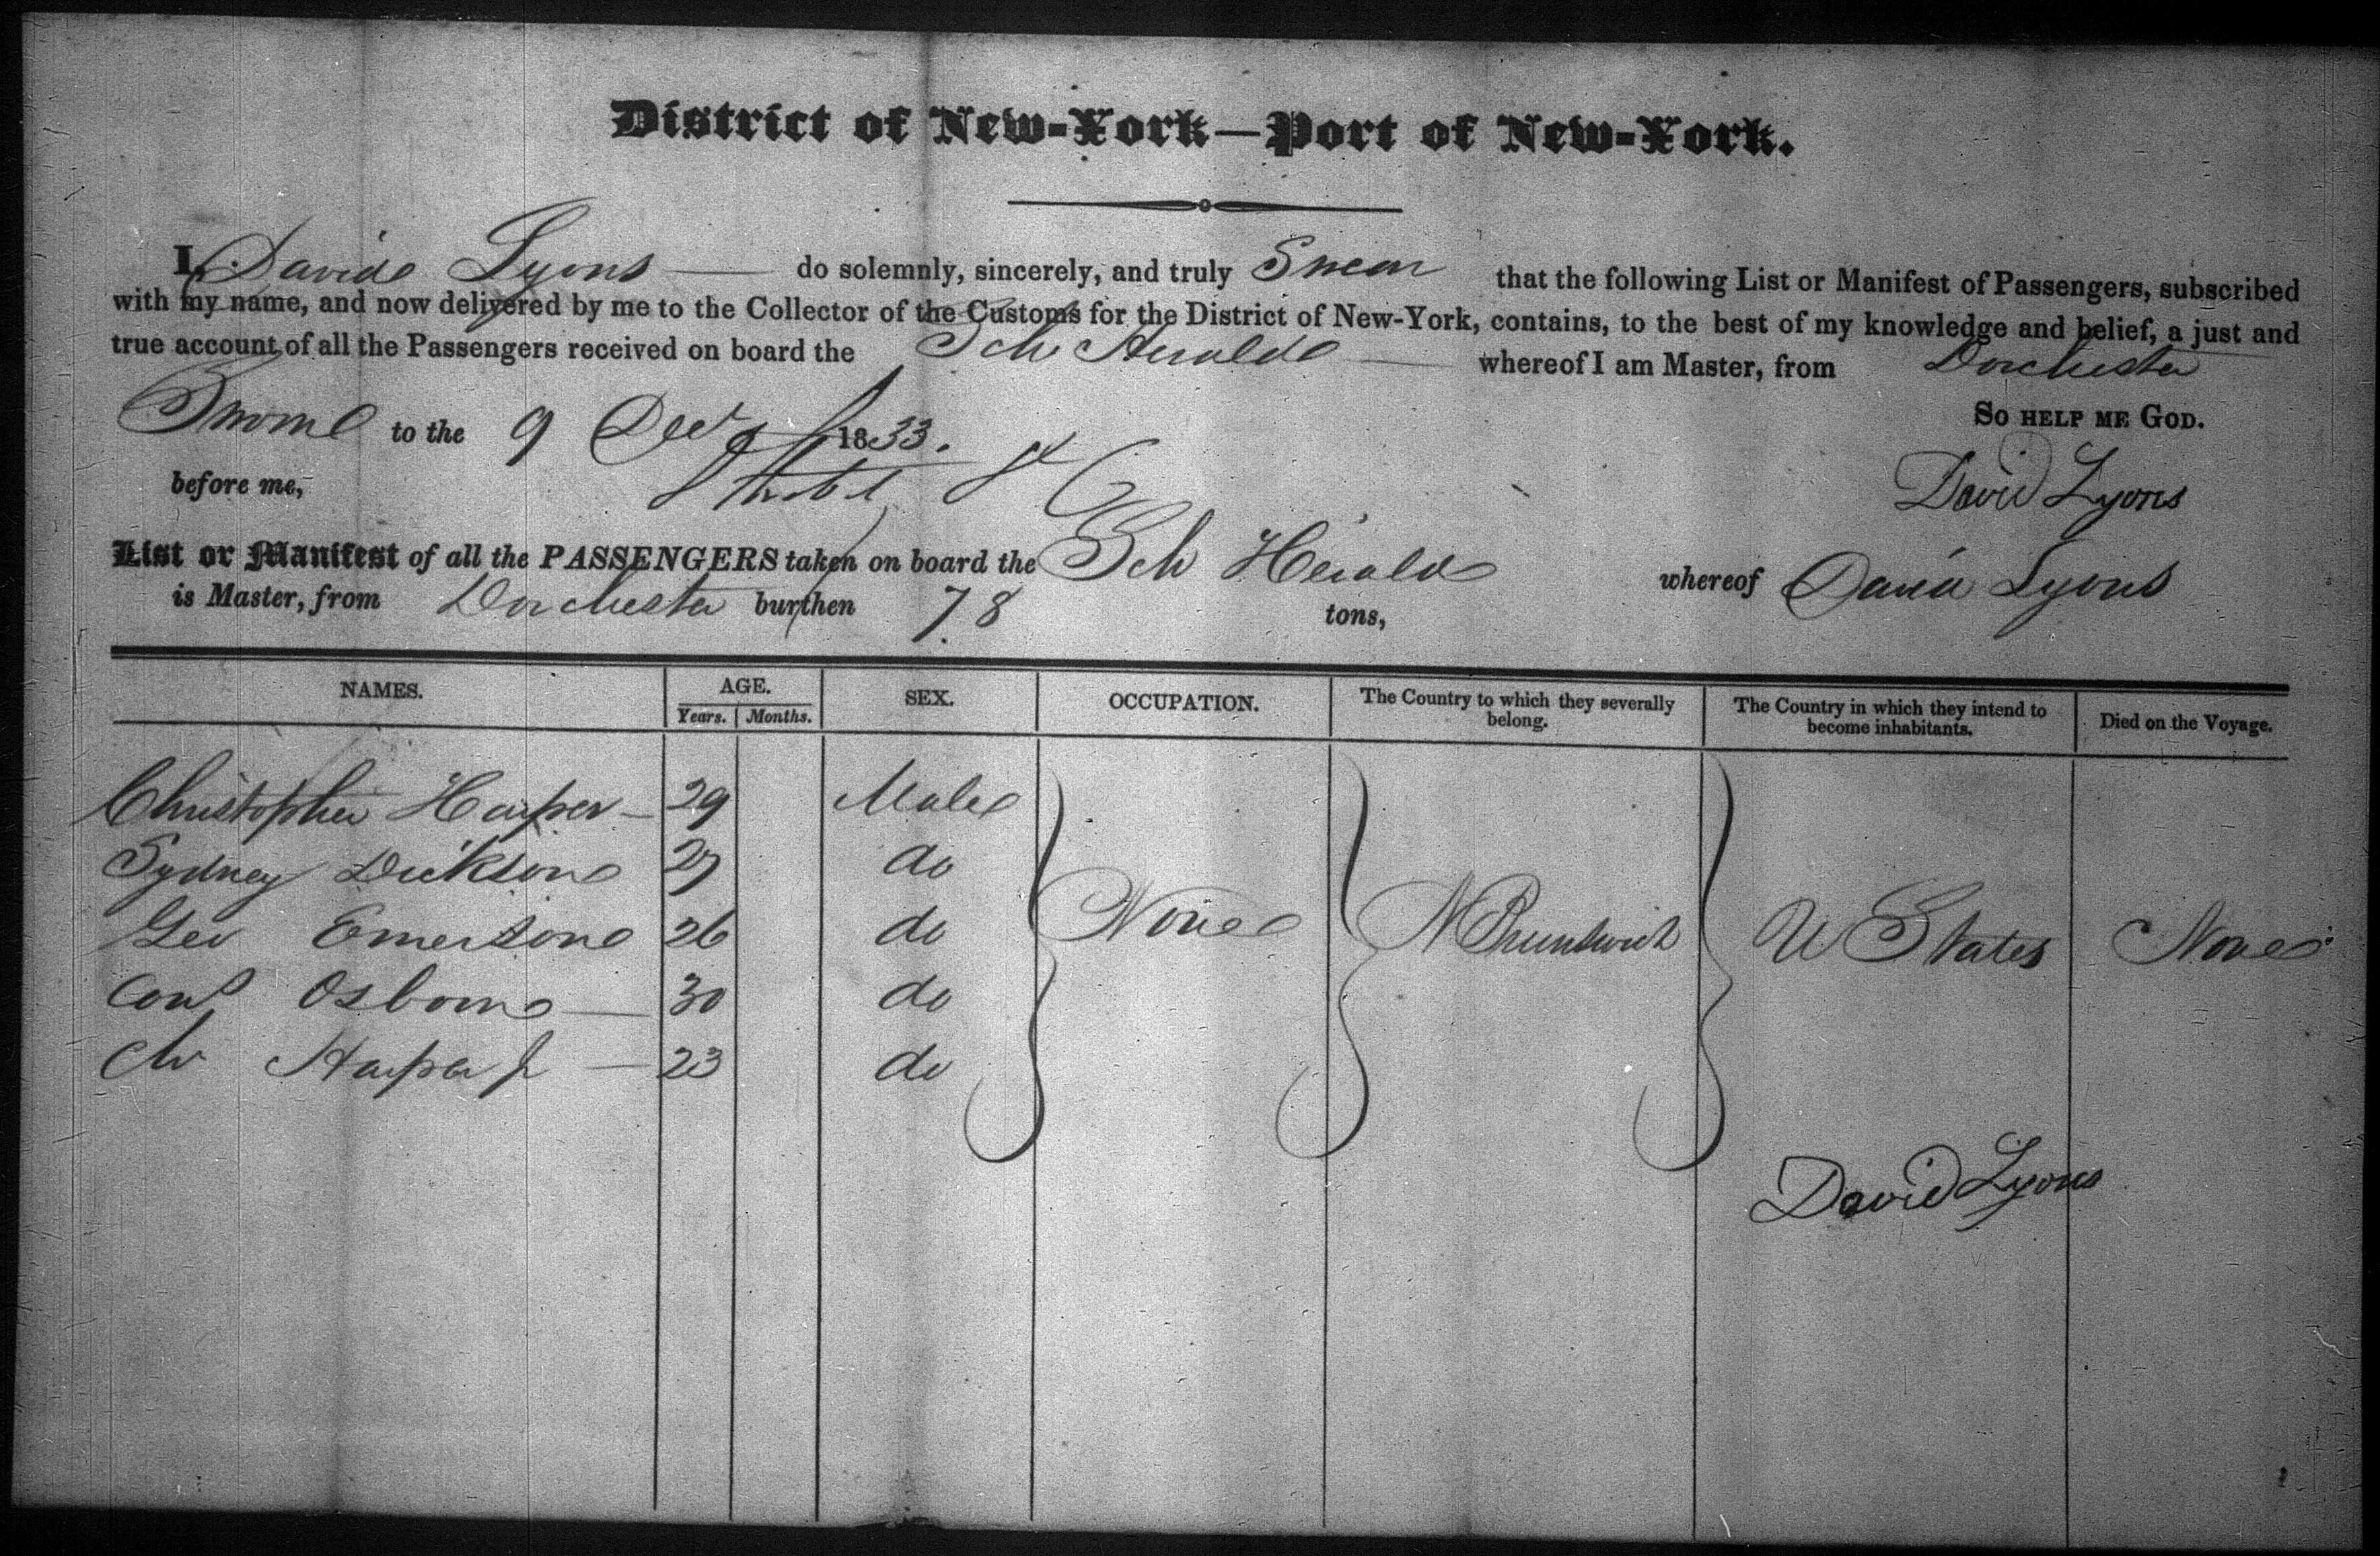 District of New-York—Port of New-York.
I, David Lyons do solemnly, sincerely, and truly Swear that the following List or Manifest of Passengers, subscribed
with my name, and now delivered by me to the Collector of the Customs for the District of New-York, contains, to the best of my knowledge and belief, a just and
true account of all the Passengers received on board the Sch Herald whereof I am Master, from Dorchester
Sworn to the 9 Decr 1833. So help me God.
before me, David Lyons
List or Manifest of all the PASSENGERS taken on board the Sch Herald whereof David Lyons
is Master, from Dorchester burthen 78 tons,
NAMES. AGE. SEX. OCCUPATION. The Country to which they severally belong. The Country in which they intend to become inhabitants. Died on the Voyage.
Years. Months.
Christopher Harper 29 Male
Sydney Dickson 27 do
Geo Emerson 26 do None N Brunswick U States None
Osborn 30 do
Ch Harper Jr 23 do
David Lyons